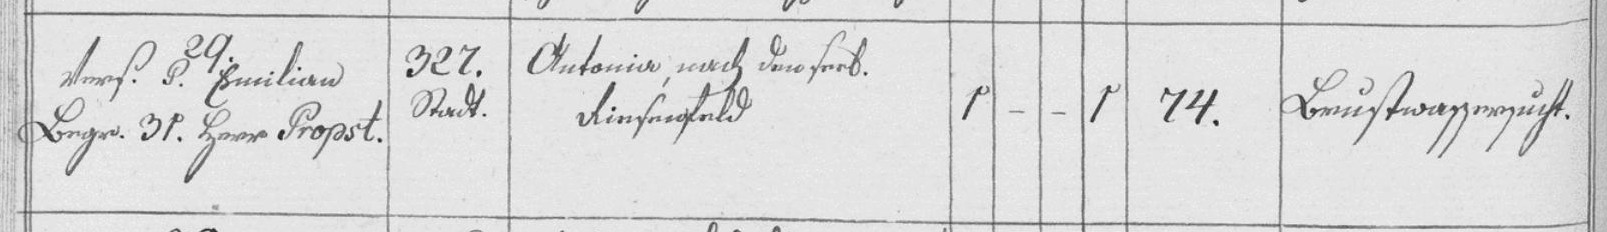 29.
Vers. P. Emilian
Begr. 31. Herr Propst.
327.
Stadt.
Antonia, nach den seel.
Riesenfeld
1 - - 1
74.
Brustwassersucht.